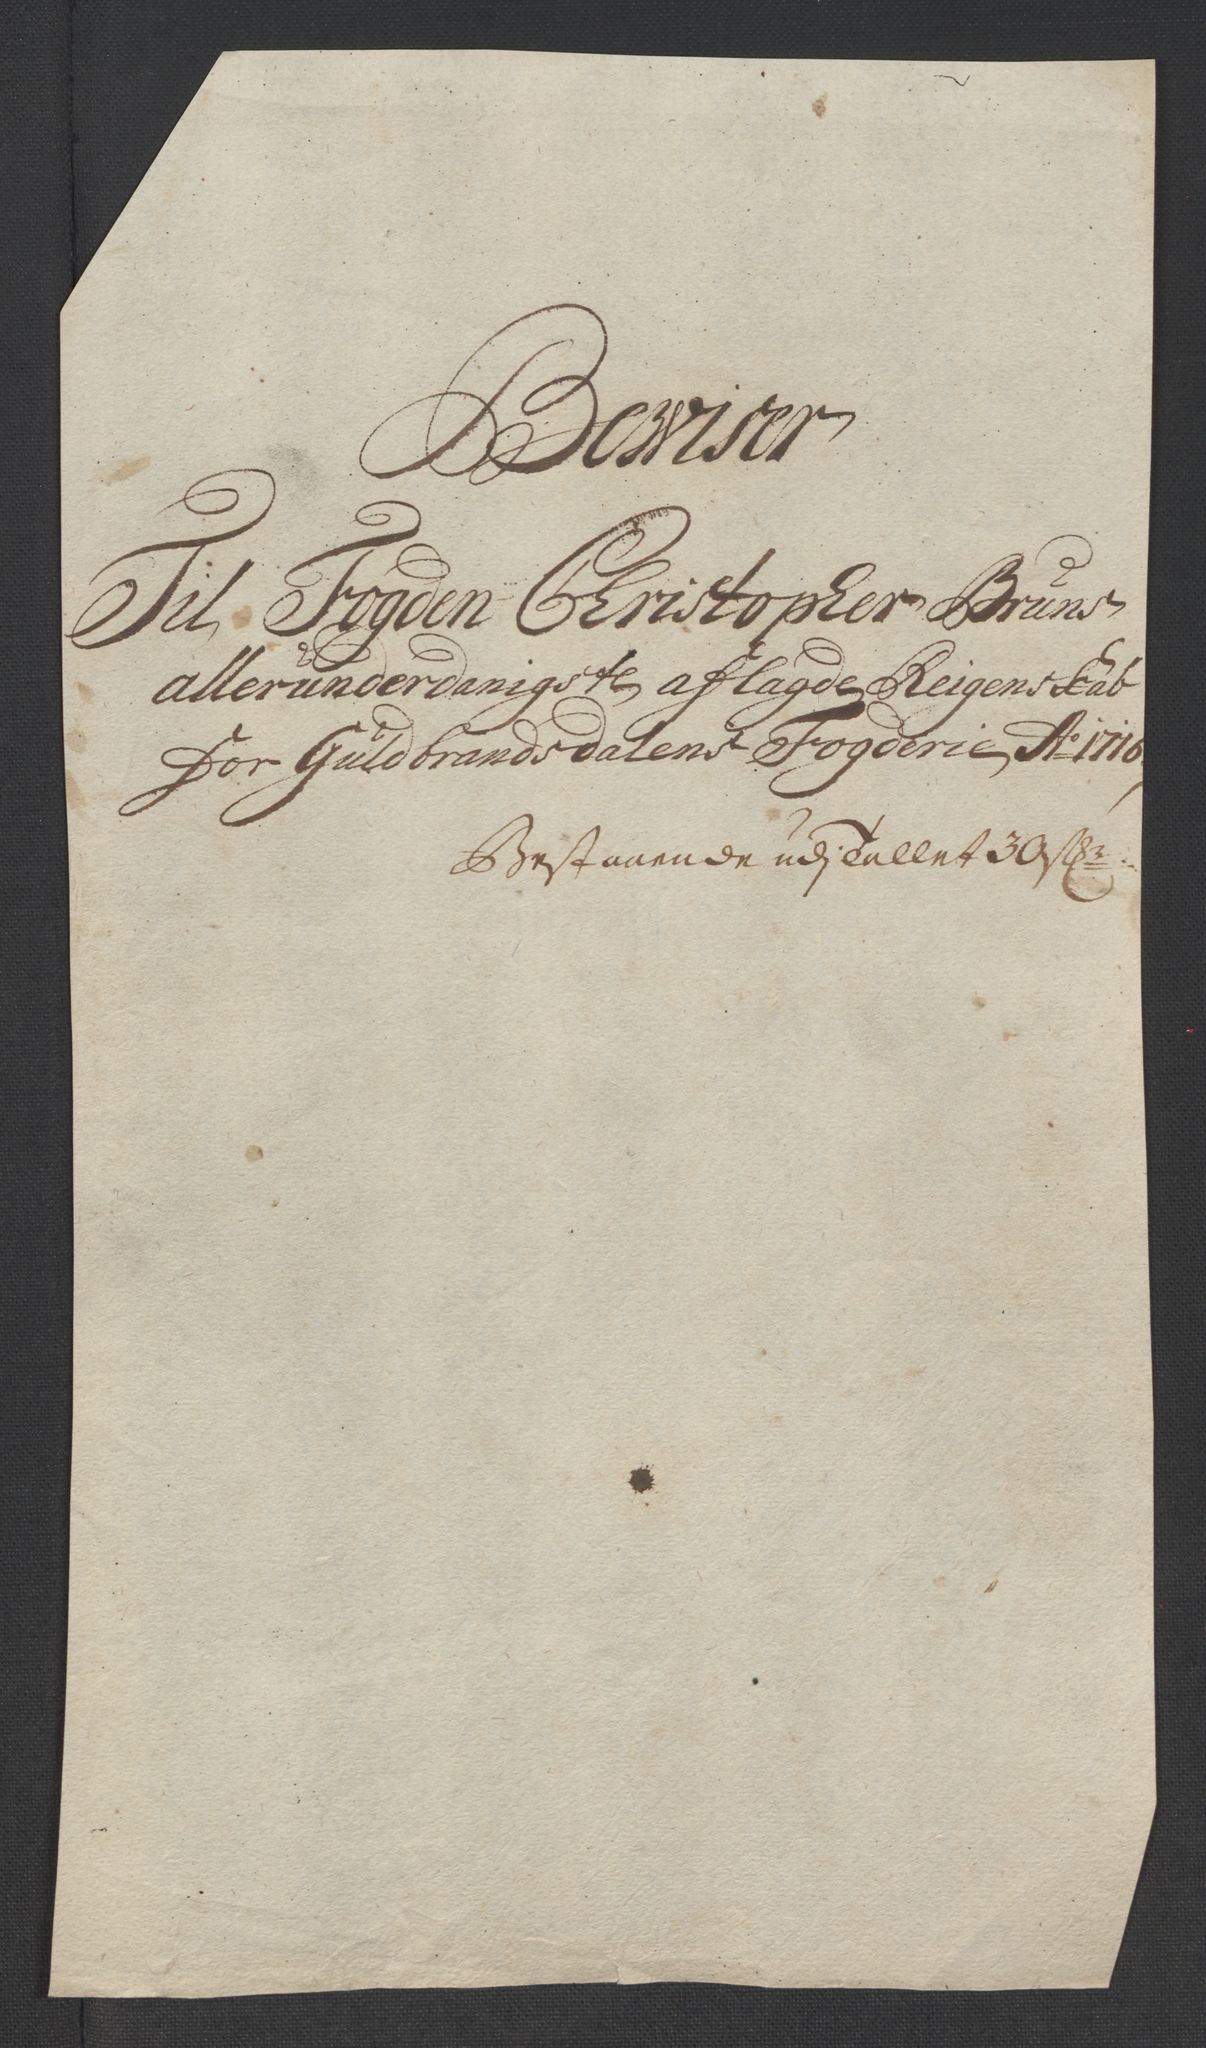 Bewiser
Til Fogden Christopher Bruns
alleründerdanigste aflagde Reigenskab
for Güldbrandsdalens Fogderie Ao 1716
Bestaaende udj Tallet 30 st:r